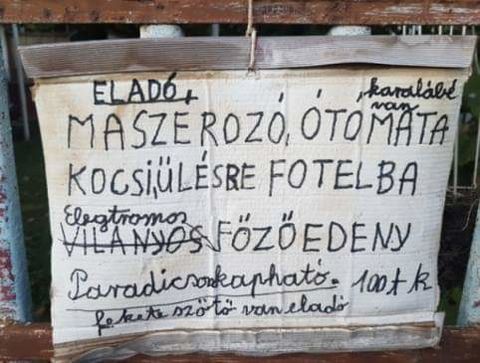 ELADÓ,
karalábé
van
MASZEROZÓ, ÓTÓMATA
KOCSIÜLÉSRE FOTELBA
Elegtromos
VILANYOS FŐZŐEDENY
Paradicsom kapható. 100 ft k
fekete szőtő van eladó